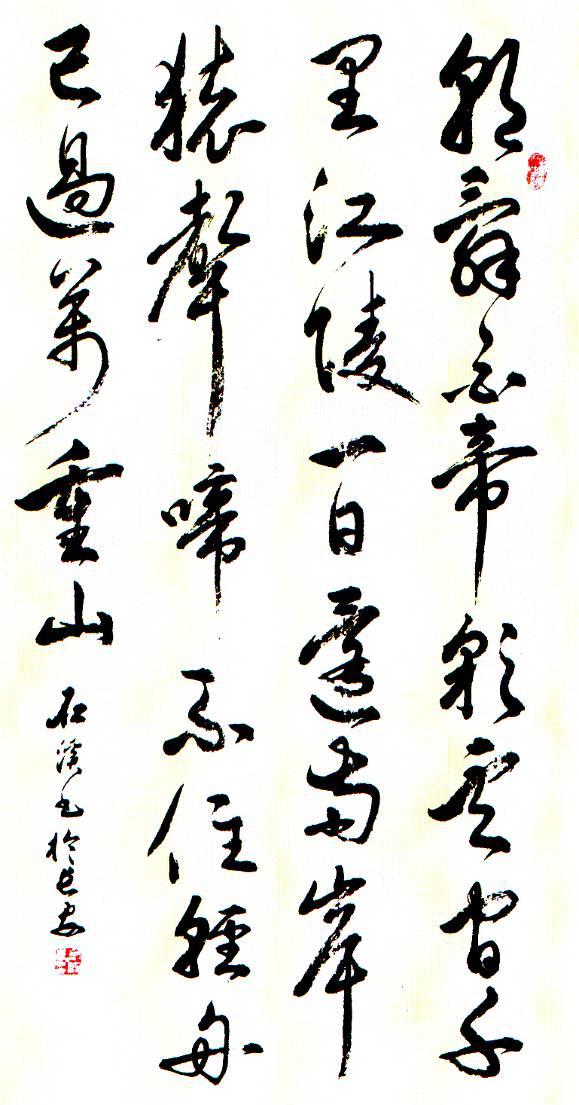 朝辭白帝彩雲間千
里江陵一日還兩岸
猿聲啼不住輕舟
已過萬重山
石溪書於長安